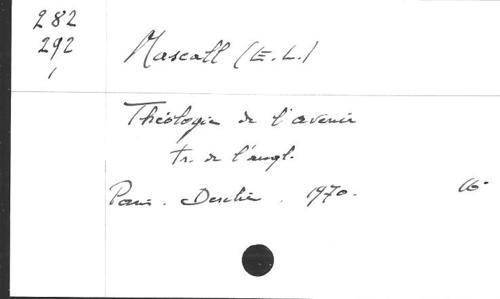 282
292
Mascall (E.L.)
Théologie de l'avenir
tr. de l'angl.
Paris. Desclée. 1970. 16°